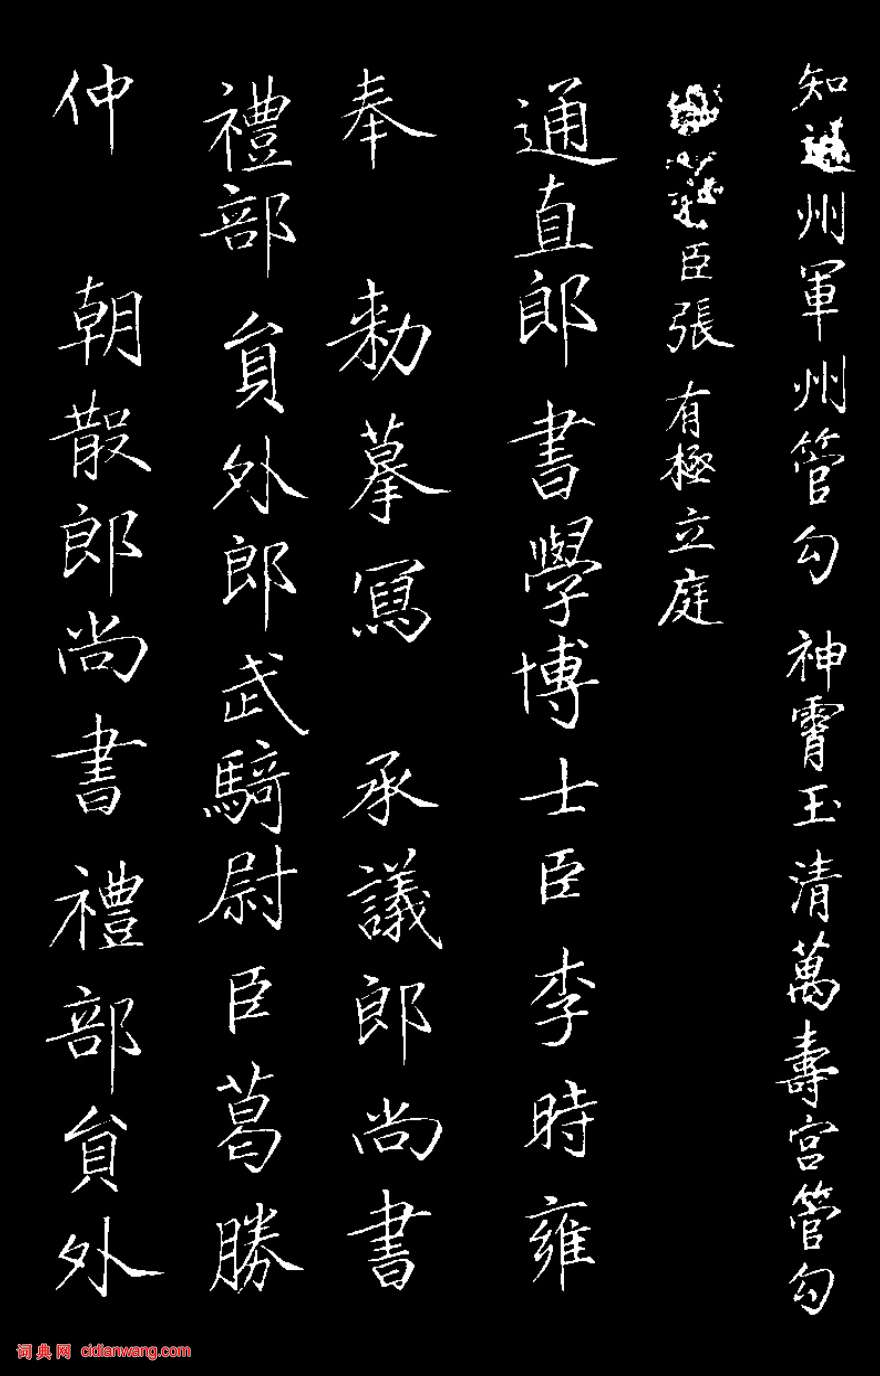 知通州軍州管勾神霄玉清萬壽宮管勾
臣張有極立庭
通直郎書學博士臣李時雍
奉敕摹寫承議郎尚書
禮部員外郎武騎尉臣葛勝
仲朝散郎尚書禮部員外
词典网 cidianwang.com